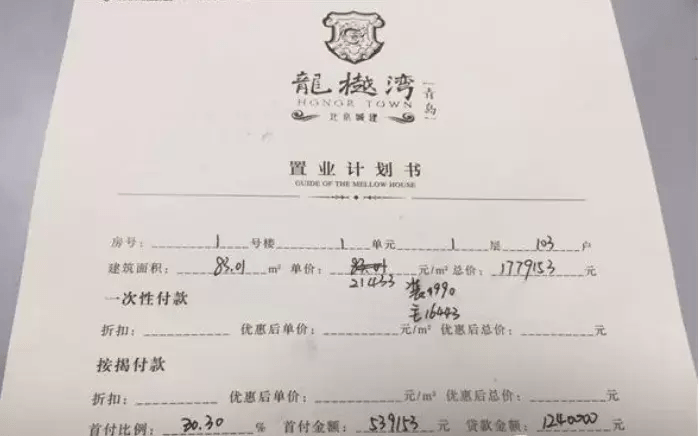 龍樾湾
[青岛]
HONOR TOWN
北京城建
置业计划书
GUIDE OF THE MELLOW HOUSE
房号: 1 号楼 1 单元 1 层 103 户
建筑面积: 83.01 m² 单价: 83.01 元/m² 总价: 1779153 元
21433
装4990
毛16443
一次性付款
折扣: 优惠后单价: 元/m² 优惠后总价: 元
按揭付款
折扣: 优惠后单价: 元/m² 优惠后总价: 元
首付比例: 30.30 % 首付金额: 539153 元 贷款金额: 1240000 元